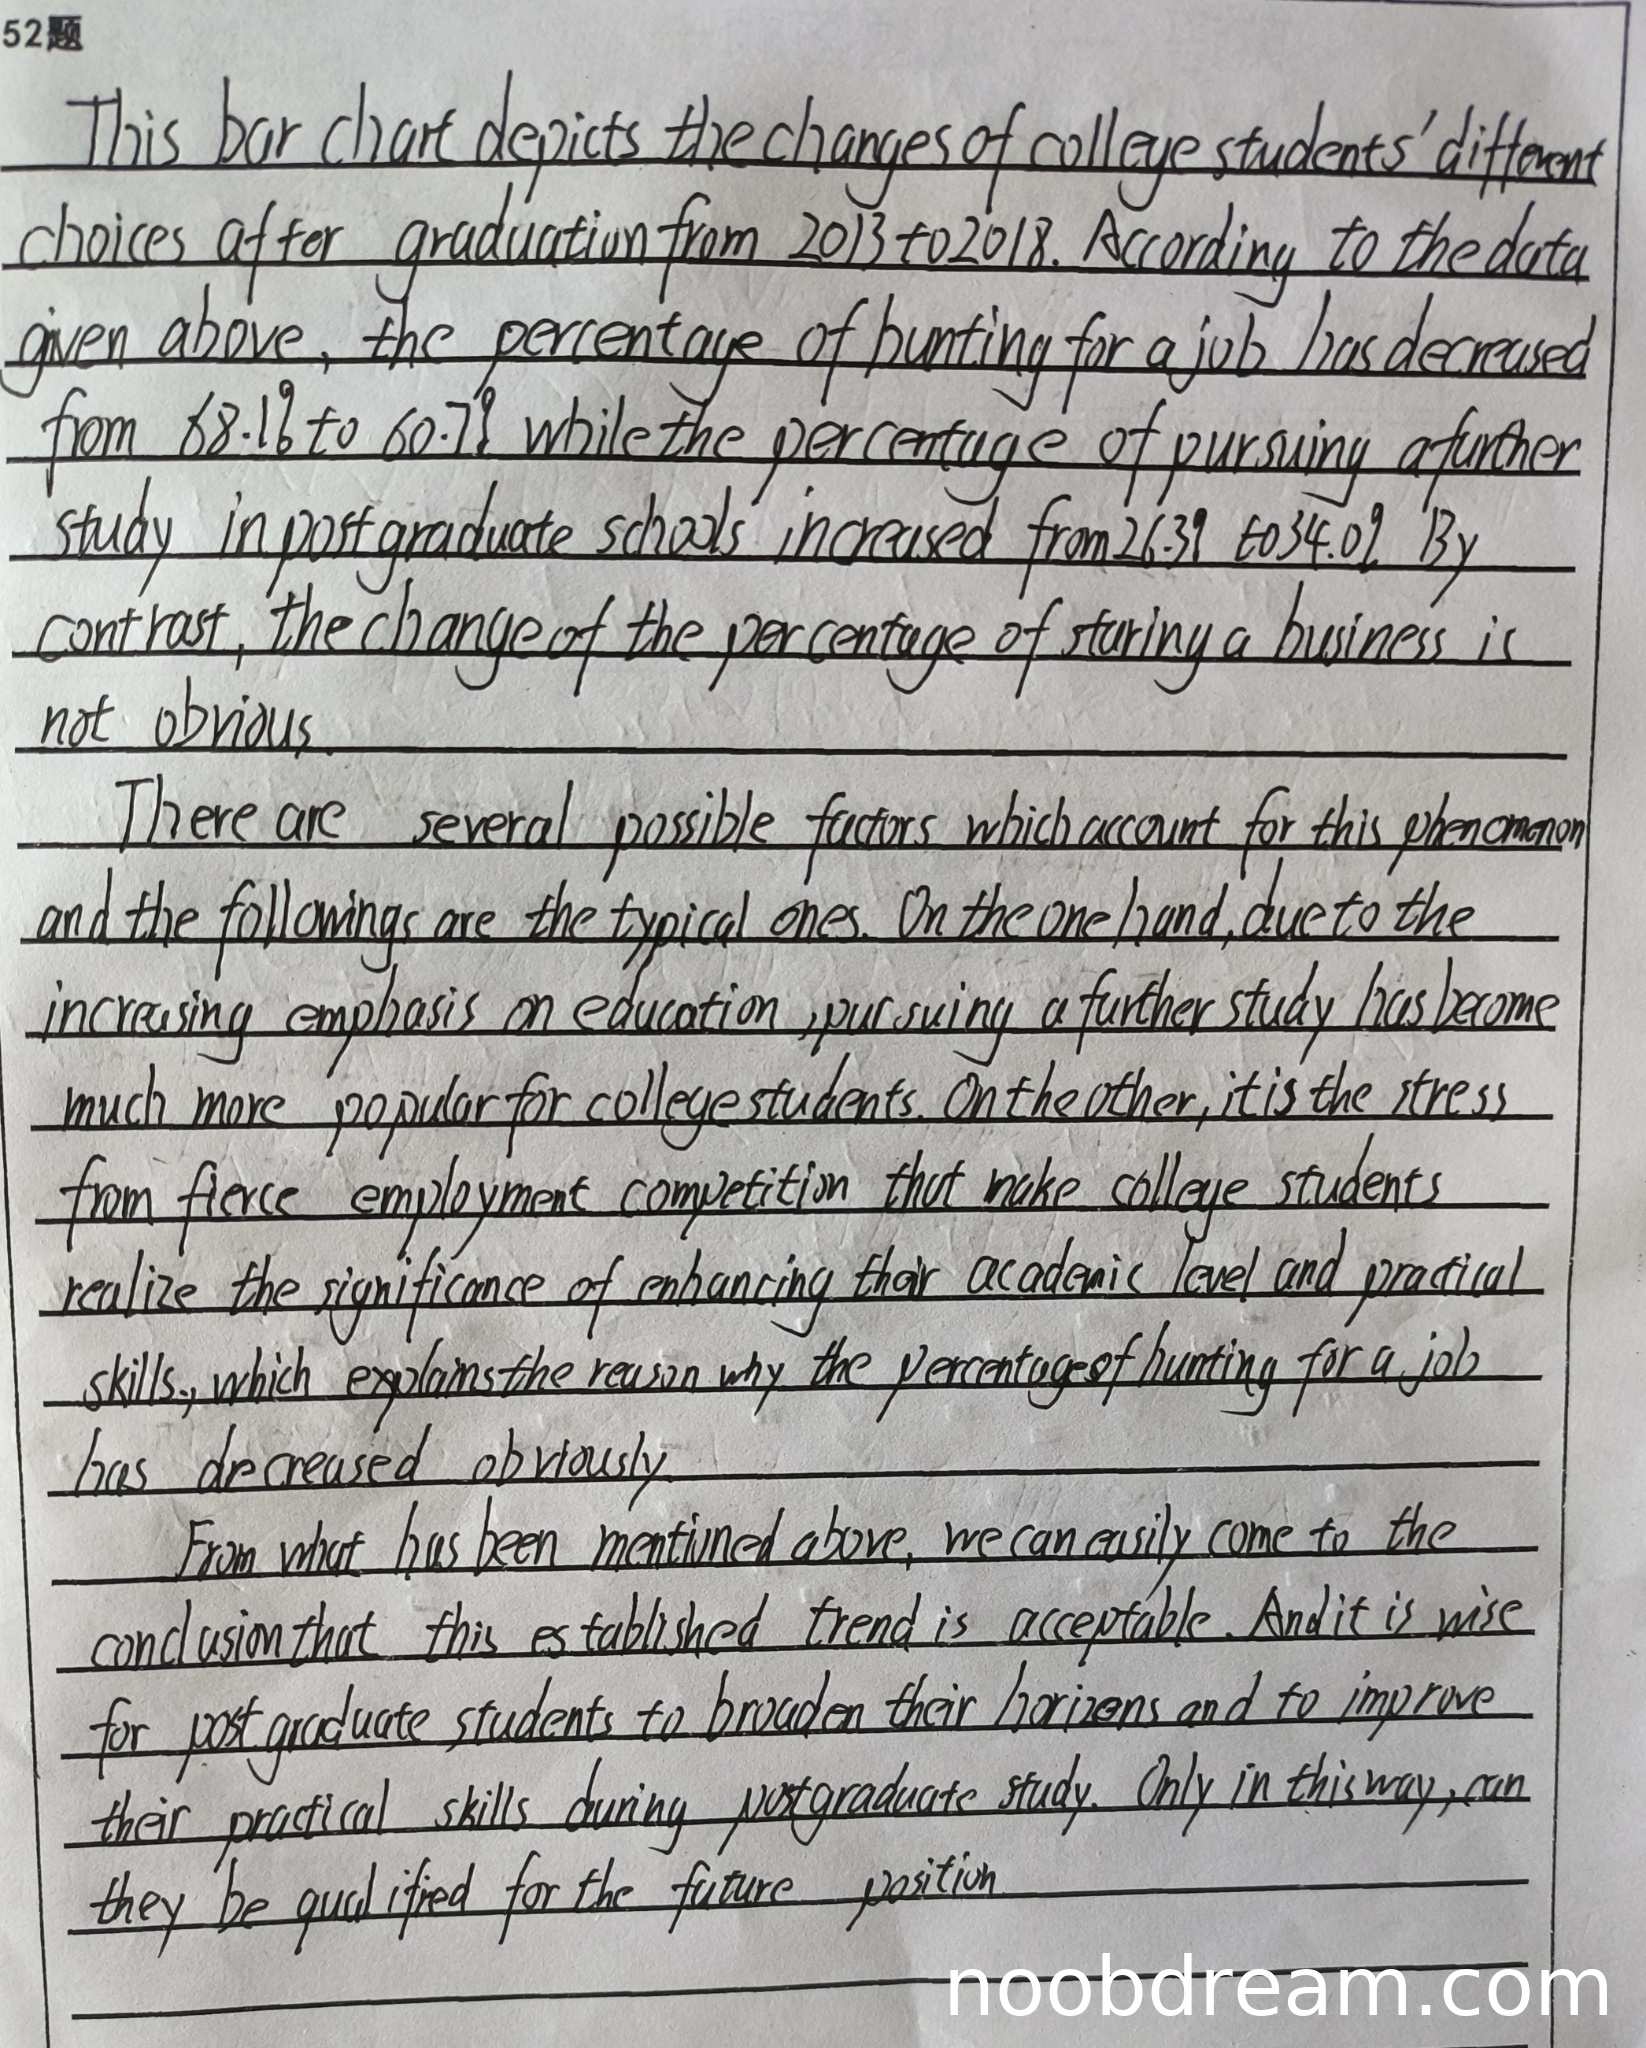 52题
This bar chart depicts the changes of college students' different
choices after graduation from 2013 to 2018. According to the data
given above, the percentage of hunting for a job has decreased
from 68.1% to 60.7% while the percentage of pursuing a further
study in postgraduate schools increased from 26.3% to 34.0% By
contrast, the change of the percentage of staring a business is
not obvious.
There are several possible factors which account for this phenomenon
and the followings are the typical ones. On the one hand, due to the
increasing emphasis on education, pursuing a further study has become
much more popular for college students. On the other, it is the stress
from fierce employment competition that make college students
realize the significance of enhancing their academic level and practical
skills, which explains the reason why the percentage of hunting for a job
has decreased obviously.
From what has been mentioned above, we can easily come to the
conclusion that this established trend is acceptable. And it is wise
for postgraduate students to broaden their horizons and to improve
their practical skills during postgraduate study. Only in this way, can
they be qualified for the future position
noobdream.com